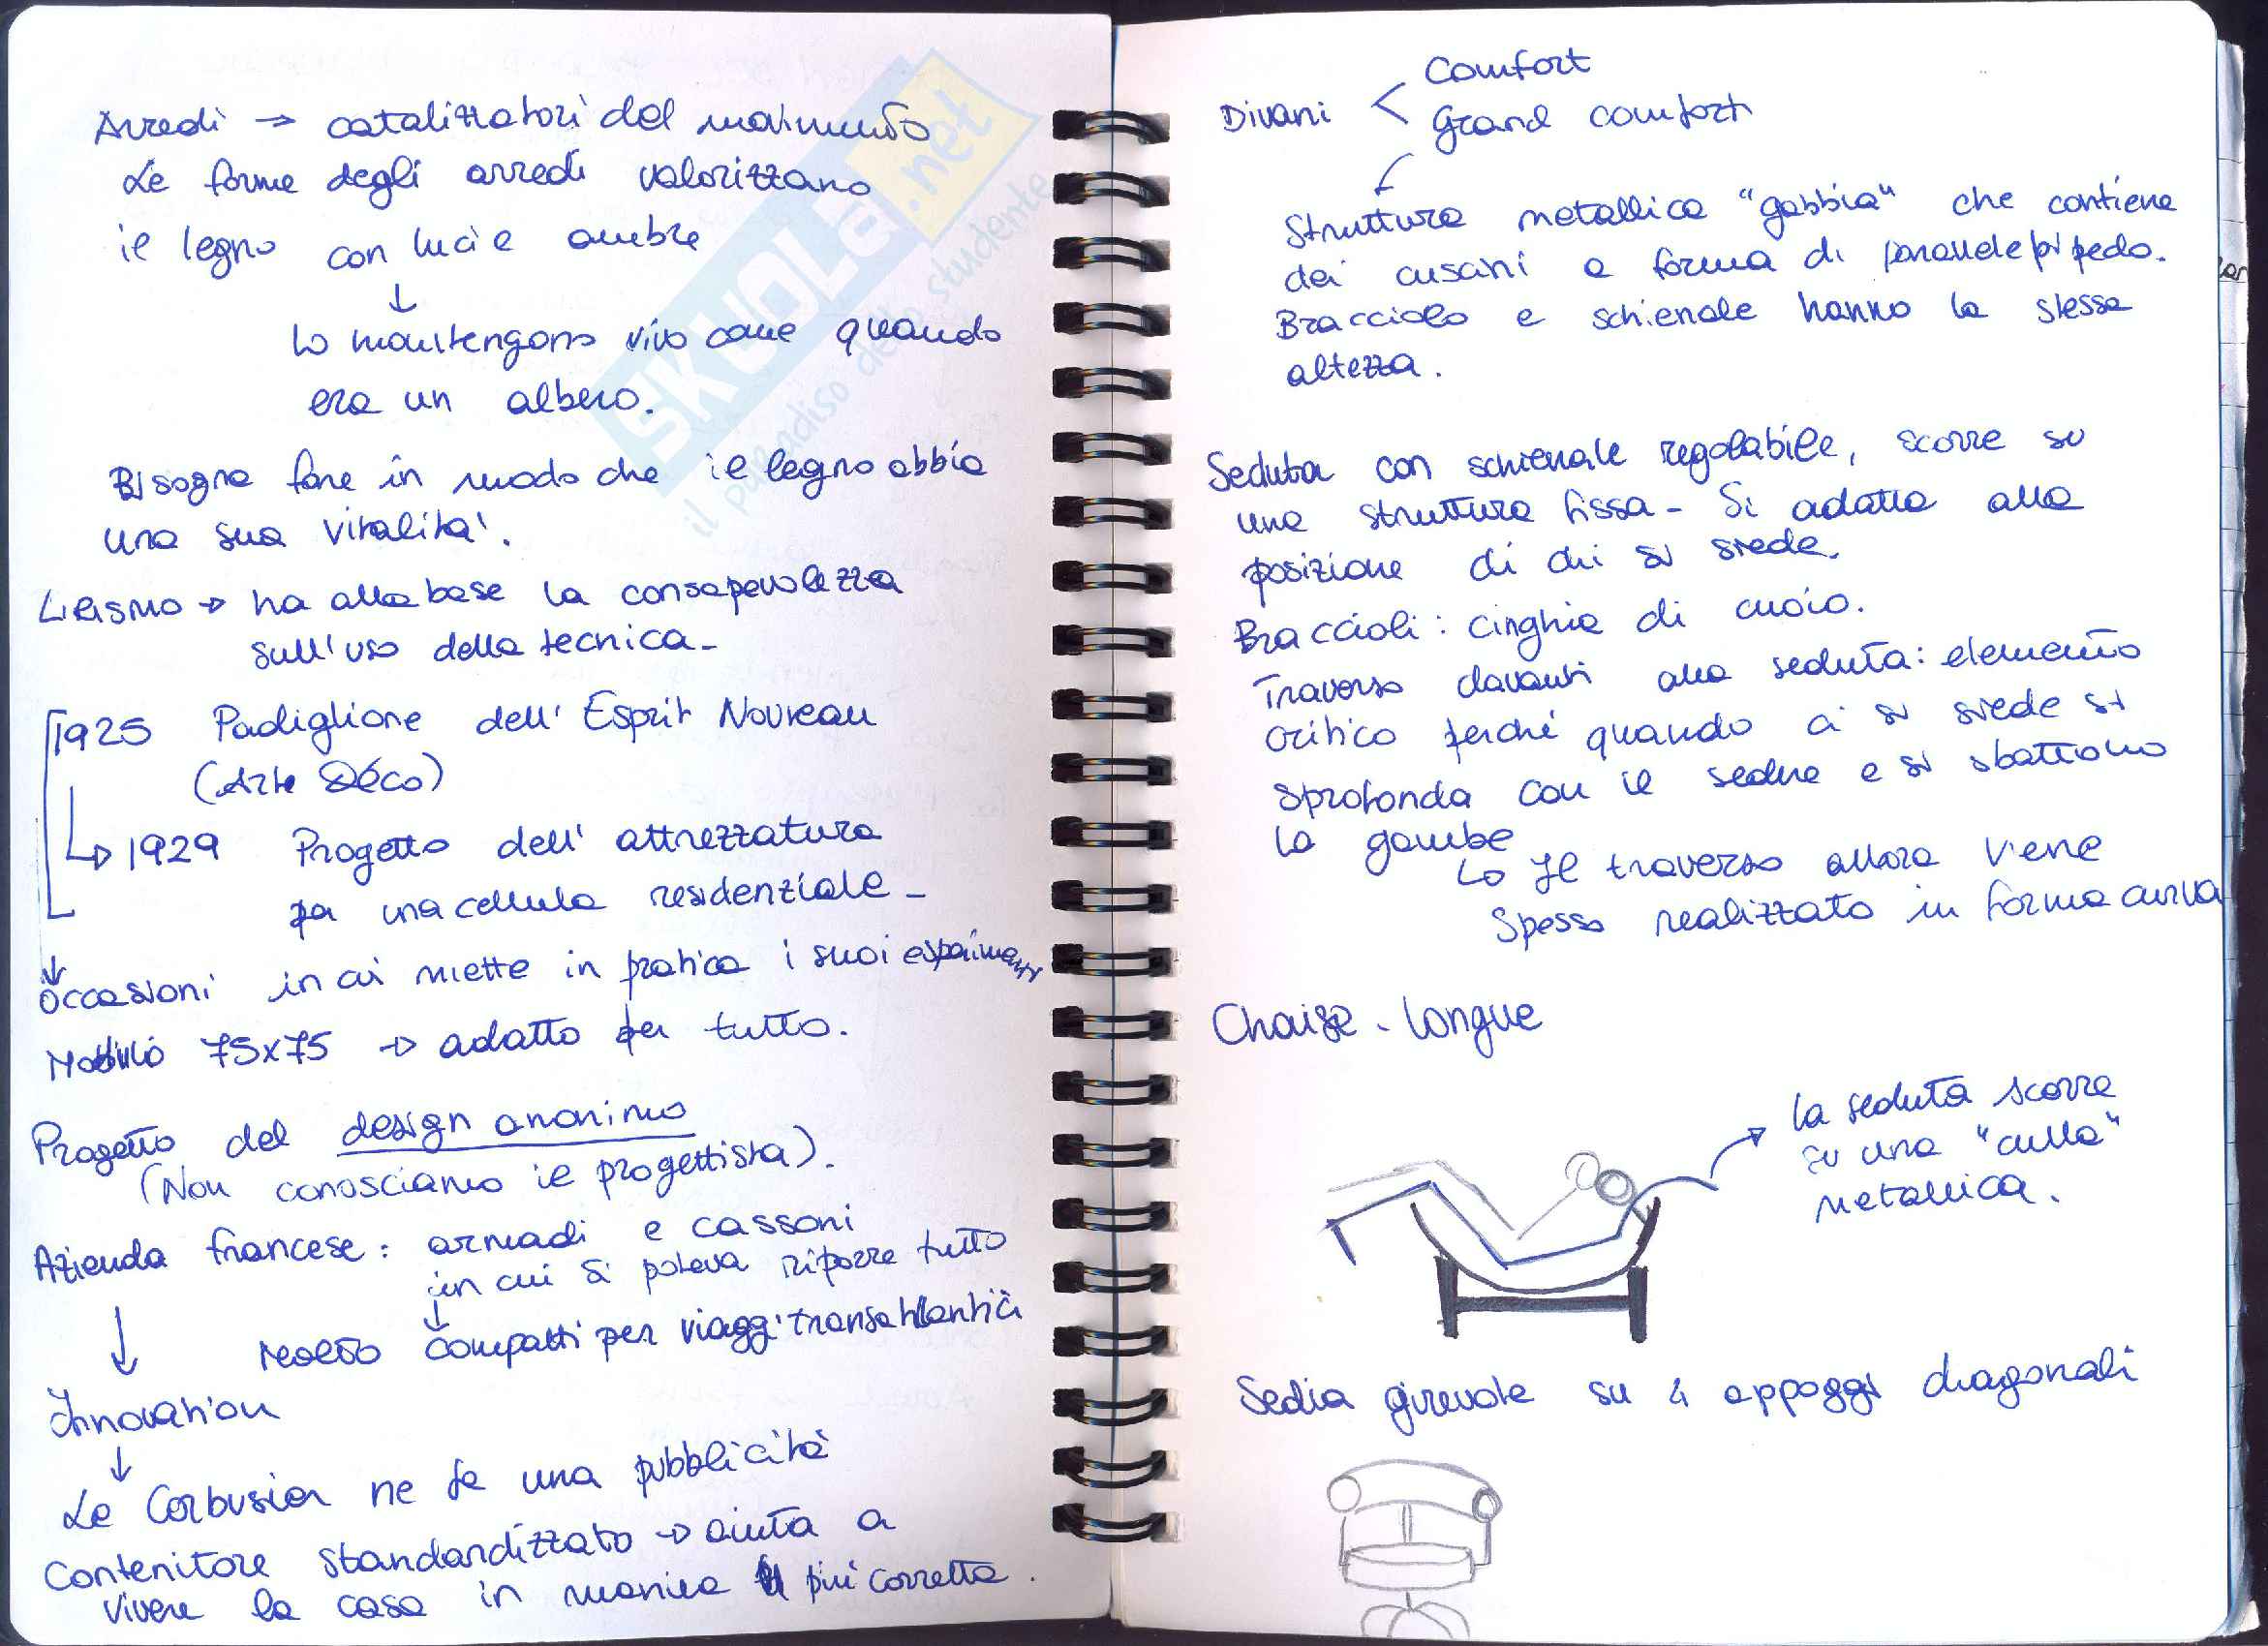 Arredi → catalizzatori del movimento
Le forme degli arredi valorizzano
il legno con luci e ombre
↓
Lo mantengono vivo come quando
era un albero.
Bisogna fare in modo che il legno abbia
una sua vitalità.
Lirismo → ha alla base la consapevolezza
sull'uso della tecnica -
1925 Padiglione dell'Esprit Nouveau
(Arte Déco)
↳ 1929 Progetto dell'attrezzatura
per una cellula residenziale -
↓
Occasioni in cui mette in pratica i suoi esperimenti
Modulo 75x75 → adatto per tutto.
Progetto del design anonimo
(Non conosciamo il progettista).
Azienda francese: armadi e cassoni
in cui si poteva riporre tutto
↓
Molto compatti per viaggi transatlantici
↓
Innovation
↓
Le Corbusier ne fa una pubblicità
Contenitore standardizzato → aiuta a
vivere la casa in maniera più corretta.
SKUOLA.net
il paradiso dello studente
Divani < Comfort
Grand comfort
Struttura metallica "gabbia" che contiene
dei cuscini a forma di parallelepipedo.
Bracciolo e schienale hanno la stessa
altezza.
Seduta con schienale regolabile, scorre su
una struttura fissa - Si adatta alla
posizione di chi si siede.
Braccioli: cinghie di cuoio.
Traverso davanti alla seduta: elemento
critico perché quando ci si siede si
sprofonda con il sedere e si sbattono
le gambe
↳ Il traverso allora viene
spesso realizzato in forma curva
Chaise-longue
la seduta scorre
su una "culla"
metallica.
Sedia girevole su 4 appoggi diagonali